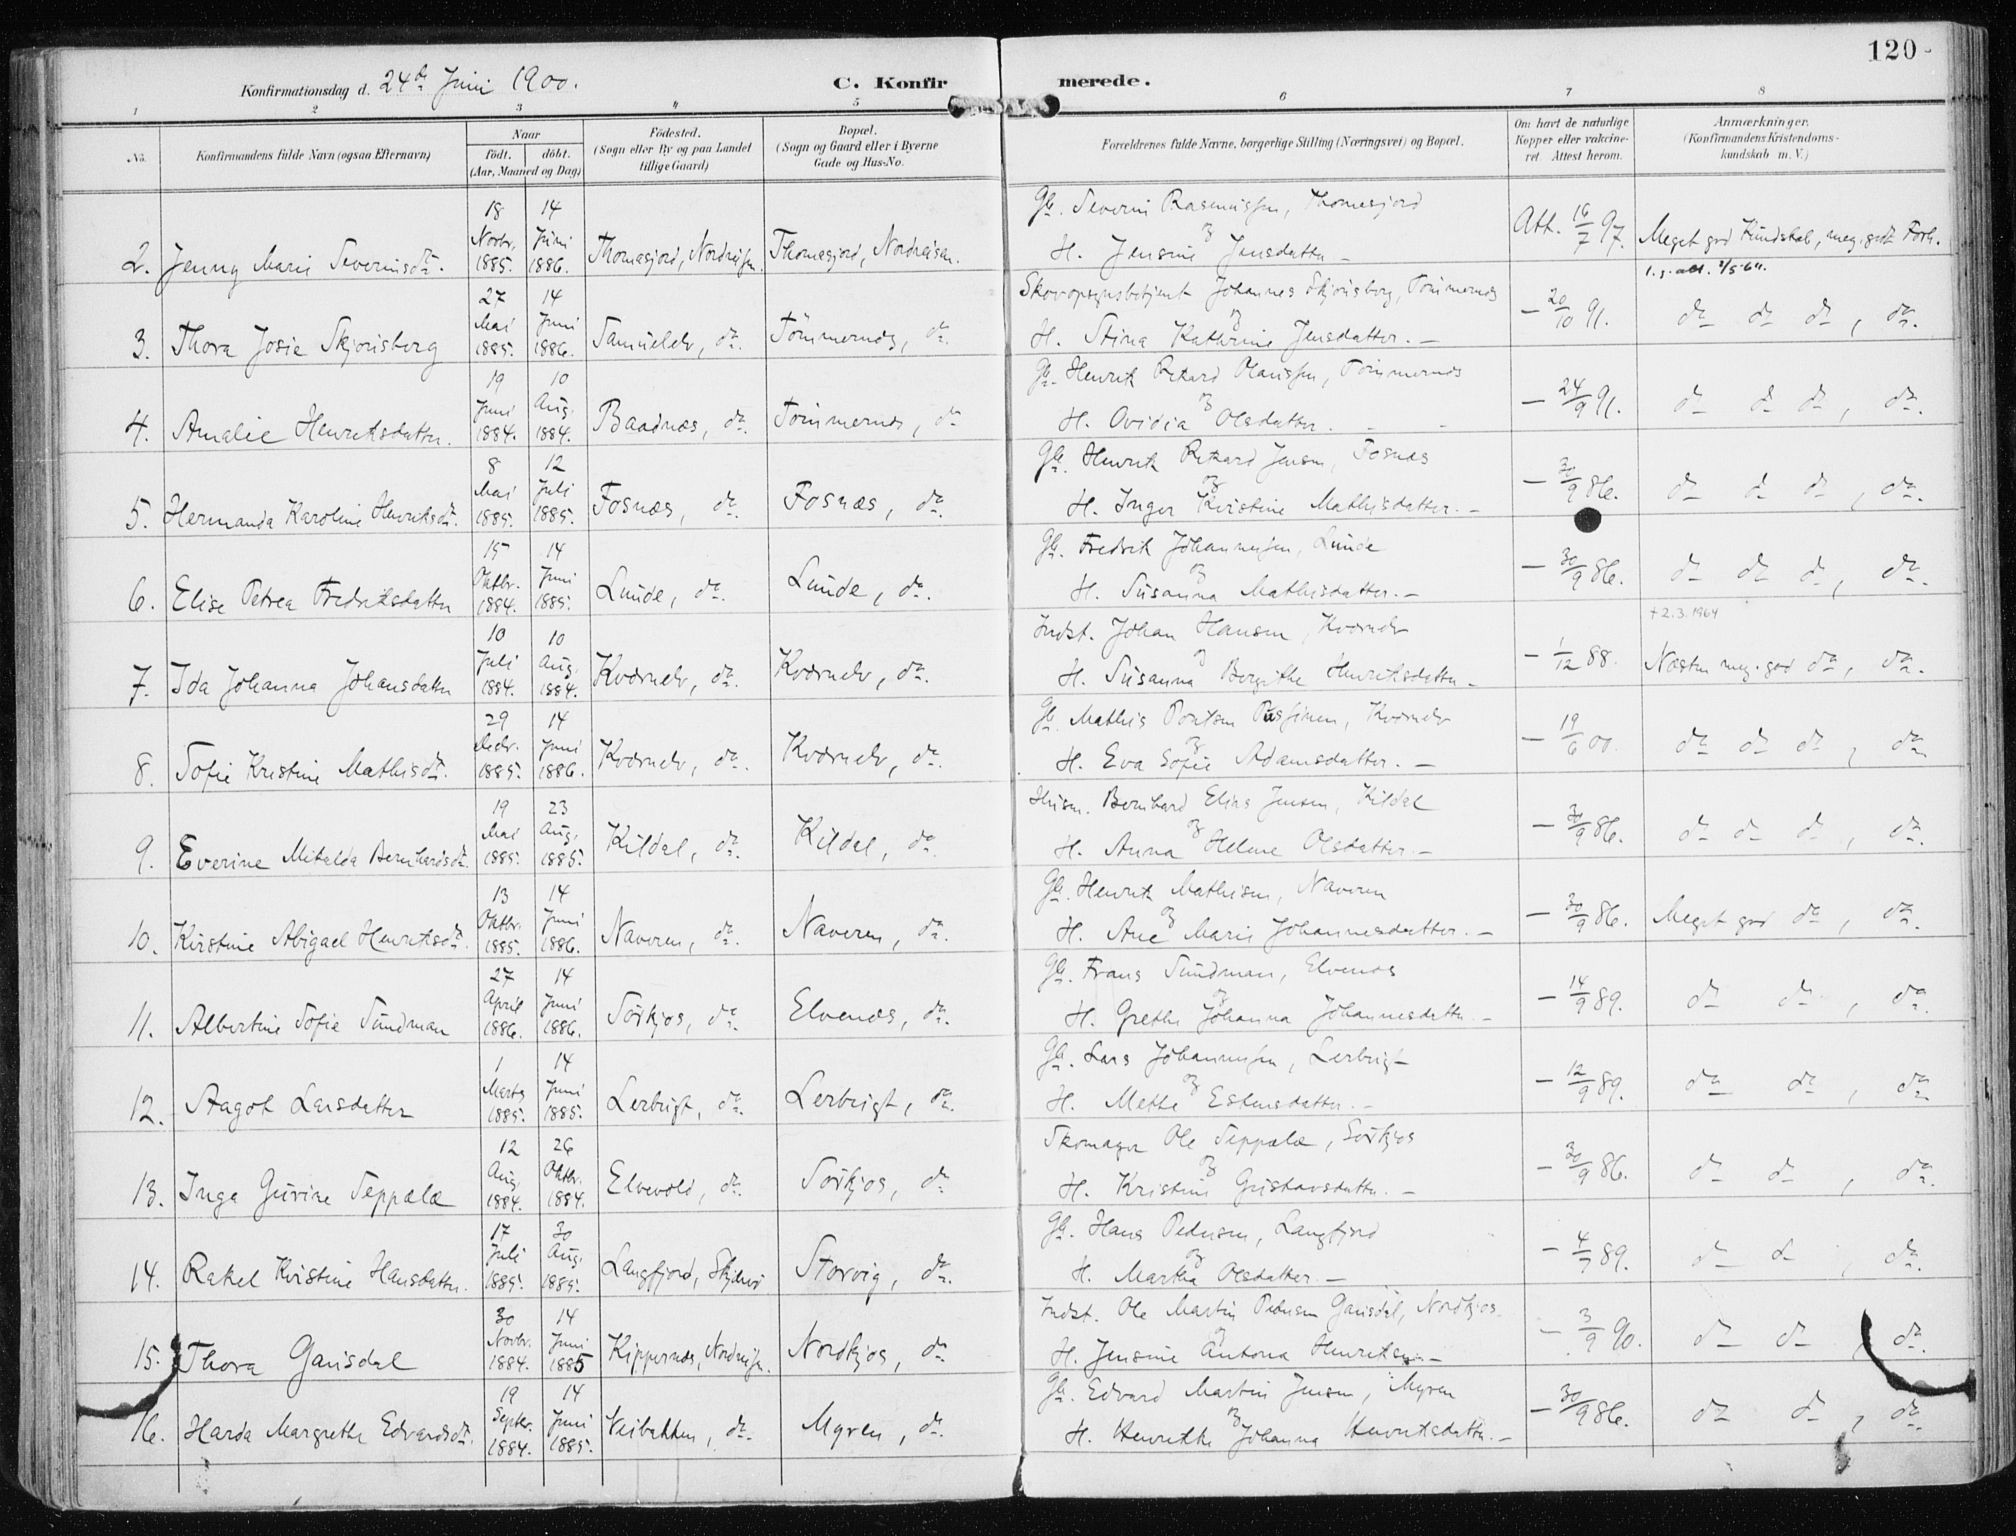 120
Konfirmationsdag d. 24de Juni 1900.
C. Konfirmerede.
1 2 3 " 5 6 7 8
No. Konfirmandens fulde Navn (ogsaa Efternavn) Naar födt. döbt. (Aar, Maaned og Dag) Födested. (Sogn eller By og paa Landet tillige Gaard) Bopæl. (Sogn og Gaard eller i Byerne Gade og Hus-No. Forældrenes fulde Navne, borgerlige Stilling (Næringsvei) og Bopæl. Om havt de naturlige Kopper eller vakcineret. Attest herom. Anmærkninger. (Konfirmandens Kristendomskundskab m. V.)
2. Jenny Marie Severinsdtr. 18 Novbr. 1885. 14 Juni 1886. Thomasjord, Nordreisen. Thomasjord, Nordreisen. Gb. Severin Rasmussen, Thomasjord
og H. Jensine Jensdatter – Att. 16/7 97. Meget god Kundskab, meg. godt Forh.
3. Thora Josie Skjönsberg 27 Mai 1885. 14 Juni 1886. Samuelelv, do. Tömmernæs, do. Skovopsynsbetjent Johannes Skjönsberg, Tömmernæs
og H. Stina Kathrine Jensdatter. – – 20/10 91. do do do, do.
4. Amalie Henriksdatter. 19 Juni 1884. 10 Aug. 1884. Baadnæs, do. Tömmernæs, do Gb. Henrik Rikard Olaussen, Tömmernæs
og H. Ovidia Olsdatter. – 24/9 91. do do do, do.
5. Hermanda Karoline Henriksdtr. 8 Mai 1885. 12 Juli 1885. Fosnæs, do. Fosnæs, do. Gb. Henrik Rikard Jensen, Fosnæs
og H. Inger Kristine Mathisdatter. – – 30/9 86. do do do, do.
6. Elise Petrea Fredriksdatter 15 Oktbr. 1884. 14 Juni 1885. Lunde, do. Lunde, do. Gb. Fredrik Johannessen, Lunde
og H. Susanna Mathisdatter. – – 30/9 86. do do do, do.
+ 2.3.1964
7. Ida Johanna Johansdatter 10 Juli 1884. 10 Aug. 1884. Kvænelv, do. Kvænelv, do. Indst. Johan Hansen, Kvænelv
og H. Susanna Bergithe Henriksdatter – – 1/12 88. Næsten meg. god do, do.
8. Sofie Kristine Mathisdtr. 29 Decbr. 1885. 14 Juni 1886. Kvænelv, do. Kvænelv, do. Gb. Mathis Pontsen, Kvænelv
og H. Eva Sofie Adamsdatter. – – 19/6 00. do do do, do.
9. Everine Mitalda Bernhardsdtr. 19 Mai 1885. 23 Aug. 1885. Kildal, do. Kildal, do. Husm. Bernhard Elias Jensen, Kildal
og H. Anna Helene Olsdatter. – – 30/9 86. do do do, do.
10. Kirstine Abigael Henriksdtr. 13 Oktbr. 1885. 14 Juni 1886. Naveren, do. Naveren, do. Gb. Henrik Mathisen, Naveren
og H. Ane Marie Johannesdatter. – – 30/9 86. Meget god do, do.
11. Albertine Sofie Sundman 27 April 1886. 14 Juni 1886. Sörkjos, do. Elvenæs, do. Gb. Frans Sundman, Elvenæs
og H. Grethe Johanna Johannesdatter – – 14/9 89. do do, do.
12. Aagot Larsdatter 1 Marts 1885. 14 Juni 1885. Lerbugt, do. Lerbugt, do. Gb. Lars Johannessen, Lerbugt
og H. Mette Estensdatter. – – 12/9 89. do do, do.
13. Inga Gurine Seppälä 12 Aug. 1884. 26 Oktbr. 1884. Elvevold, do. Sörkjos, do Skomager Ole Seppälä, Sörkjos
og H. Kristine Gustavsdatter. – – 30/9 86. do do, do.
14. Rakel Kristine Hansdatter. 17 Juli 1885. 30 Aug. 1885. Langfjord, Skjervö Storvig, do. Gb. Hans Pedersen, Langfjord
og H. Martha Olsdatter. – – 4/7 89. do do, do.
15. Thora Gausdal 30 Novbr. 1884. 14 Juni 1885 Kippernæs, Nordreisen. Nordkjos, do Indst. Ole Martin Pedersen Gausdal, Nordkjos.
og H. Jensine Antona Henriksen – – 3/9 90. do do, do.
16. Harda Margrethe Edvardsdtr. 19 Septbr. 1884. 14 Juni 1885. Veibakken, do. Myren, do. Gb. Edvard Martin Jensen, Myren
og H. Henrikke Johanna Henriksdatter. – – 30/9 86. do do, do.